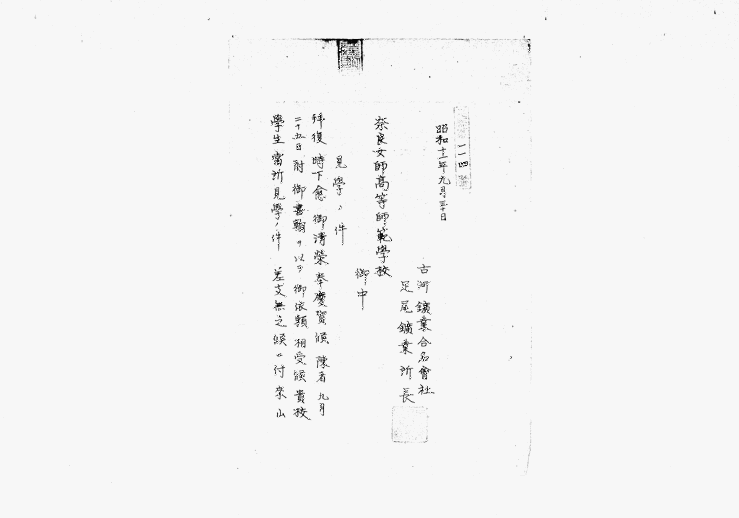 二一四
昭和十二年九月三十日
古河鑛業合名會社
足尾鑛業所長
奈良女師高等師範學校
御中
見學ノ件
拜復 時下愈御清榮奉慶賀候 陳者九月
二十五日附御書翰ヲ以テ御依頼相受候貴校
學生當所見學ノ件 差支無之候ニ付來山